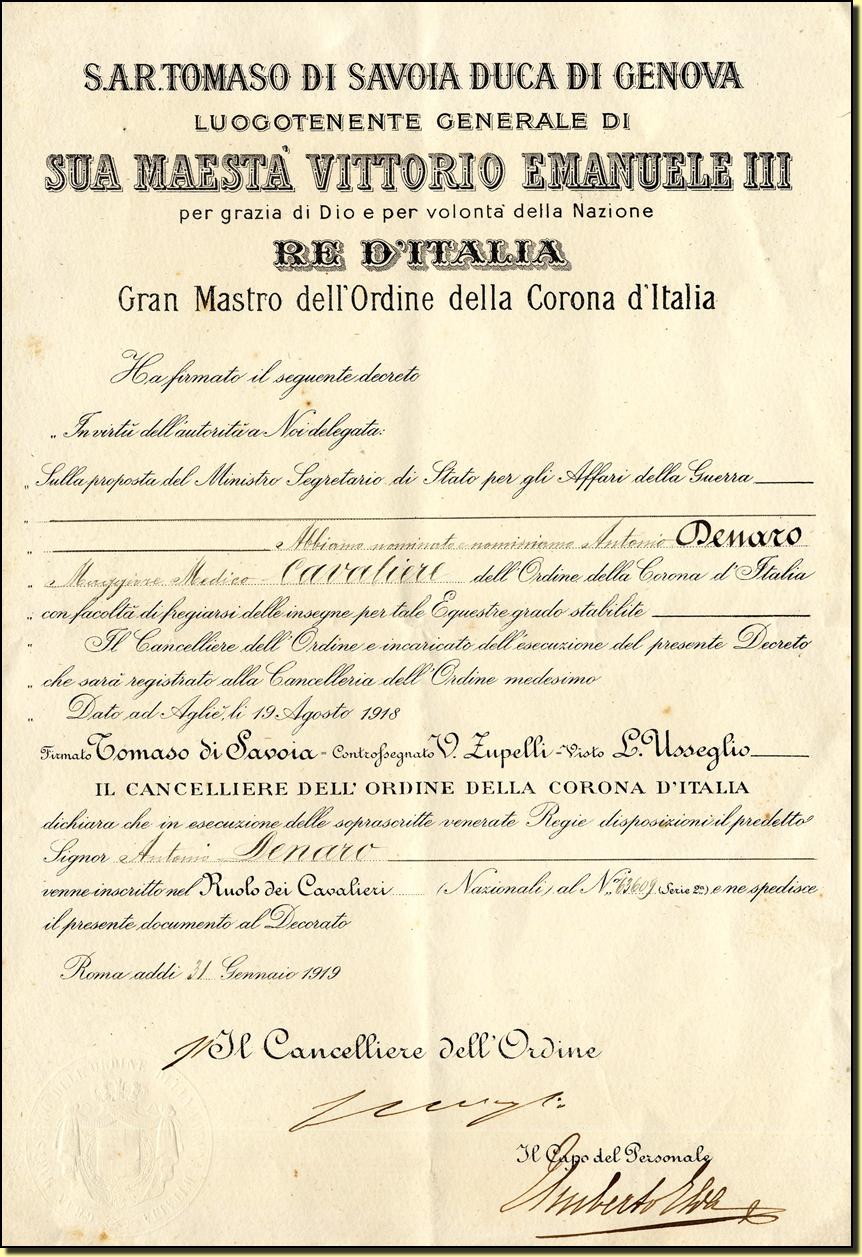 S.A.R. TOMASO DI SAVOIA DUCA DI GENOVA
LUOGOTENENTE GENERALE DI
SUA MAESTÀ VITTORIO EMANUELE III
per grazia di Dio e per volontà della Nazione
RE D'ITALIA
Gran Mastro dell'Ordine della Corona d'Italia
Ha firmato il seguente decreto
„ In virtù dell'autorità a Noi delegata:
„ Sulla proposta del Ministro Segretario di Stato per gli Affari della Guerra
„
„ Abbiamo nominato e nominiamo Antonio Denaro
„ Maggiore Medico - Cavaliere dell'Ordine della Corona d'Italia
„ con facoltà di fregiarsi delle insegne per tale Equestre grado stabilite
„ Il Cancelliere dell'Ordine e incaricato dell'esecuzione del presente Decreto
„ che sarà registrato alla Cancelleria dell'Ordine medesimo
„ Dato ad Agliè, li 19 Agosto 1918
Firmato Tomaso di Savoia = Controssegnato V. Zupelli - Visto L. Usseglio
IL CANCELLIERE DELL'ORDINE DELLA CORONA D'ITALIA
dichiara che in esecuzione delle soprascritte venerate Regie disposizioni il predetto
Signor Antonio Denaro
venne inscritto nel Ruolo dei Cavalieri (Nazionali) al N.º 63609 (Serie 2ª) e ne spedisce
il presente documento al Decorato
Roma addì 31 Gennaio 1919
p Il Cancelliere dell'Ordine
Il Capo del Personale
Umberto